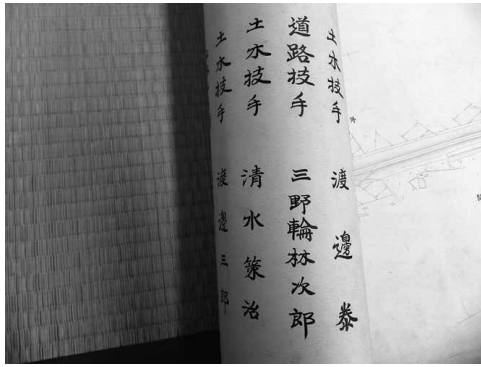 土木技手 渡邊 泰
道路技手 三野輪林次郎
土木技手 清水策治
土木技手 渡邊三郎